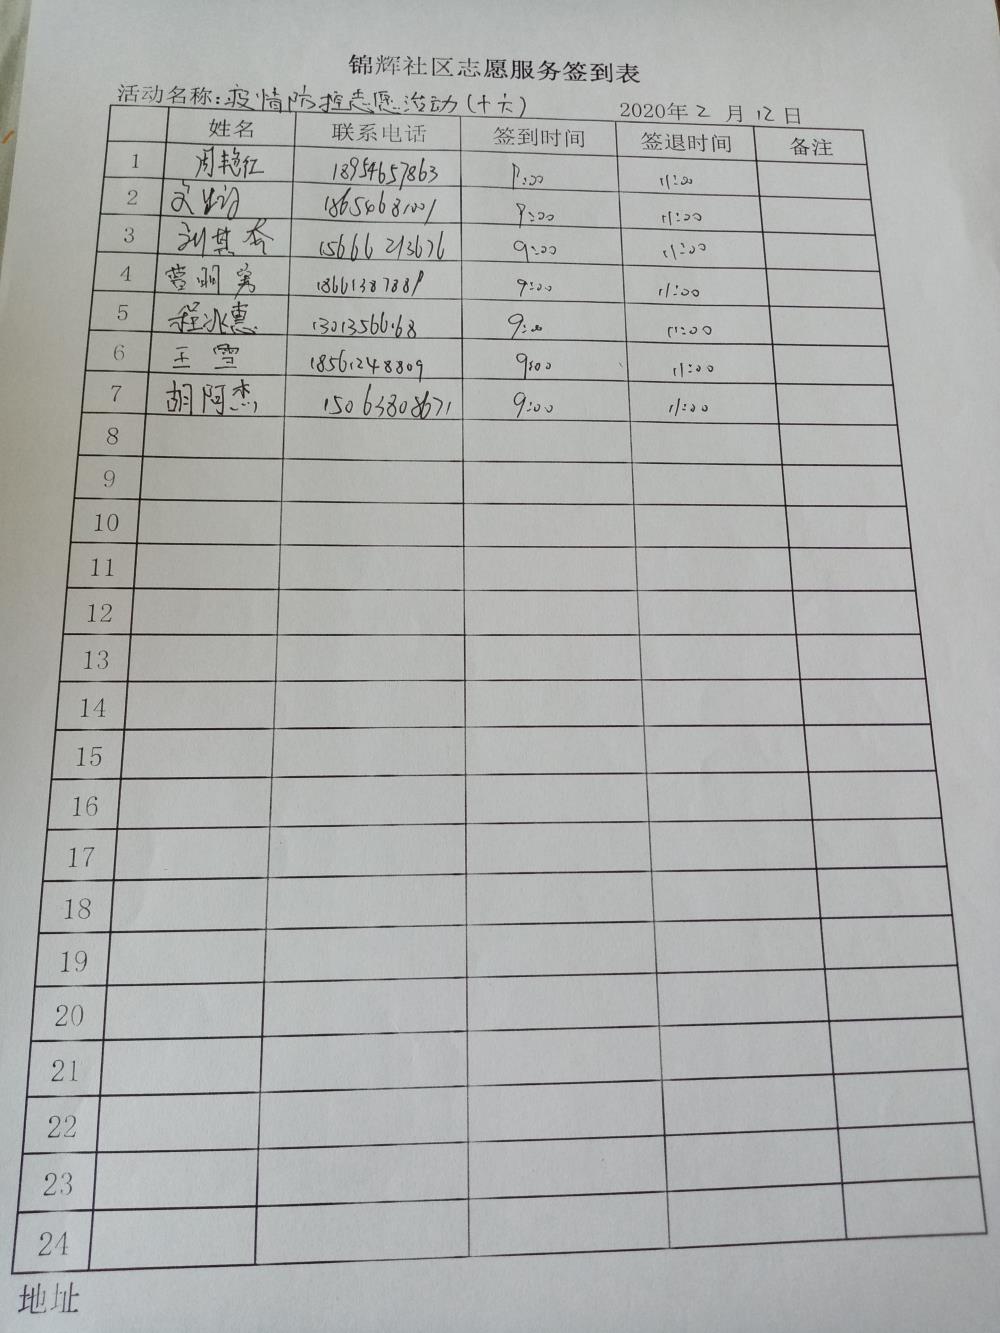 锦辉社区志愿服务签到表
活动名称:疫情防控志愿活动(十六) 2020年2月12日
姓名 联系电话 签到时间 签退时间 备注
1 周艳红 18954657863 9:00 11:00
2 18654681001 9:00 11:00
3 刘其 15666213676 9:00 11:00
4 9:00 11:00
5 程冰惠 9:00 11:00
6 王雪 18561248809 9:00 11:00
7 胡阿杰 15063808671 9:00 11:00
8
9
10
11
12
13
14
15
16
17
18
19
20
21
22
23
24
地址